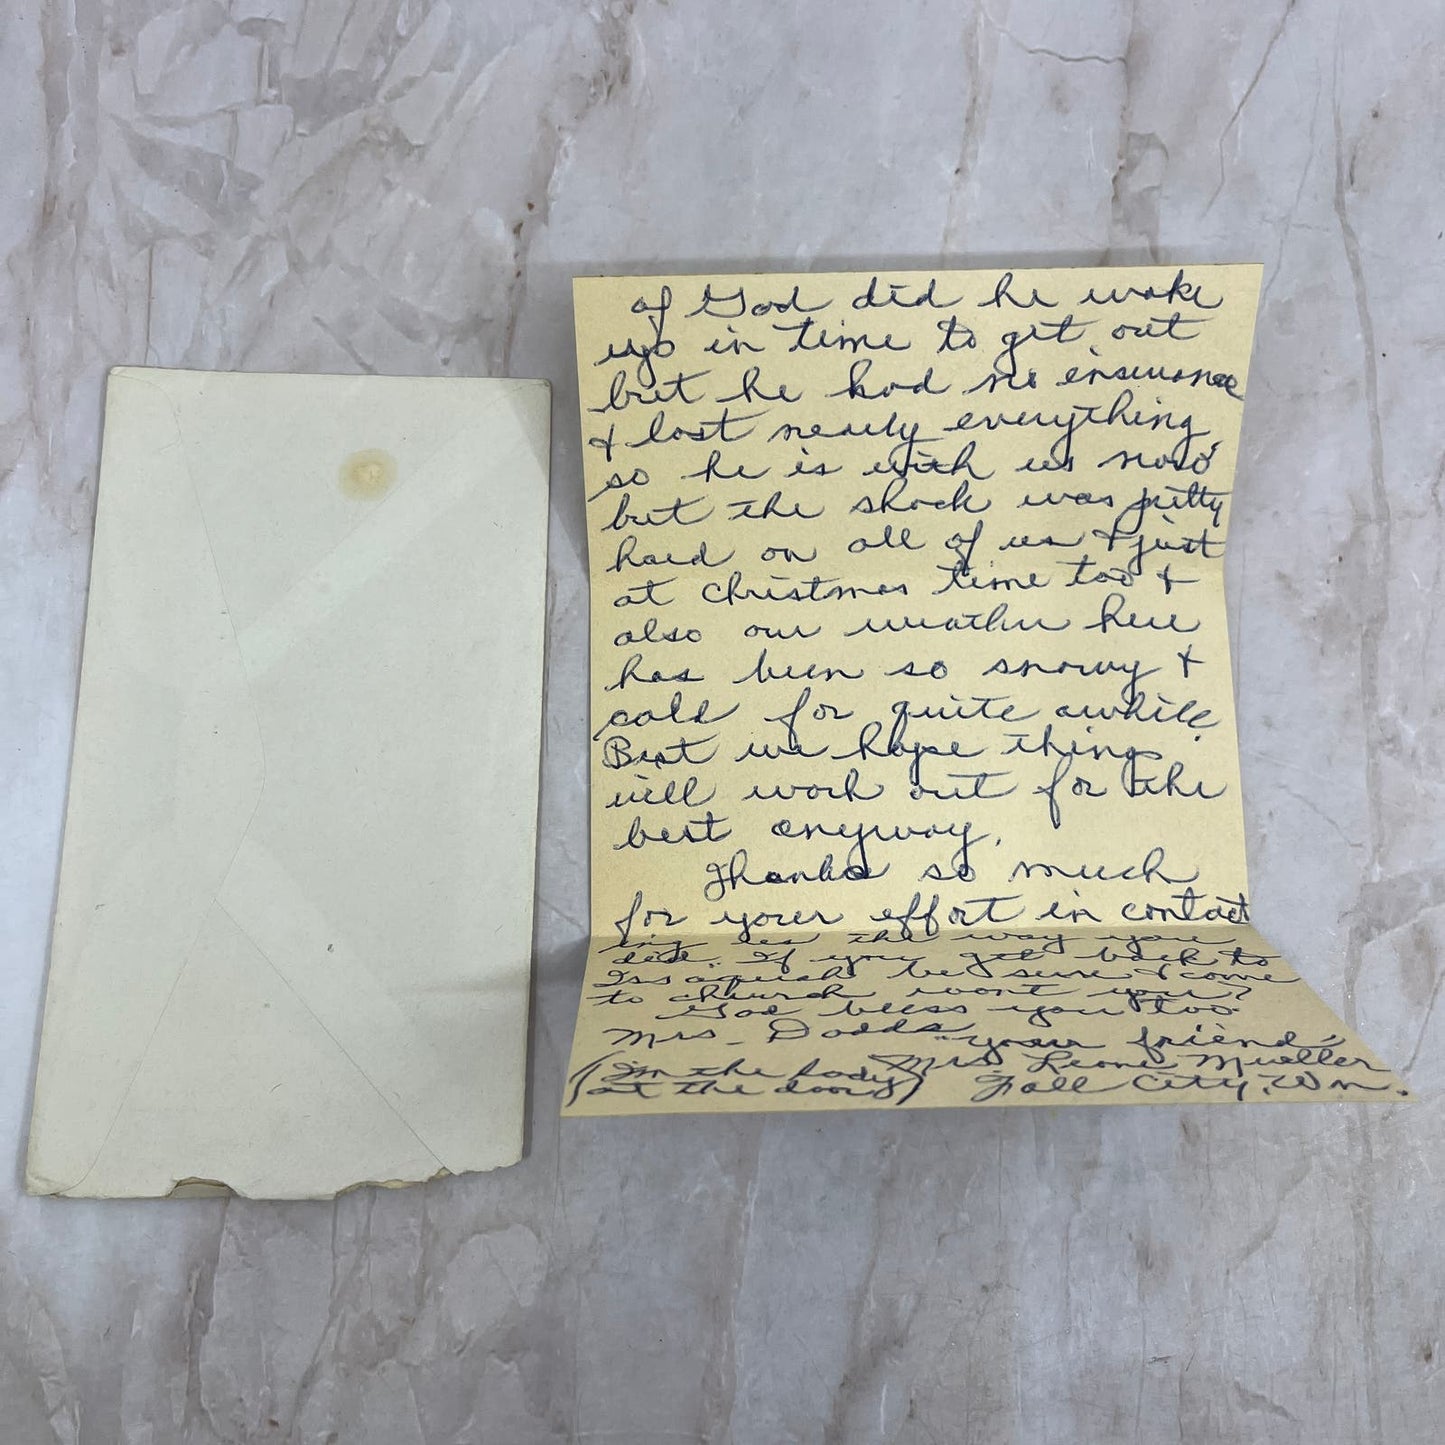 of God did he wake
up in time to get out
but he had no insurance
& lost nearly everything,
so he is with us now
but the shock was pretty
hard on all of us & just
at christmas time too &
also our weather here
has been so snowy &
cold for quite awhile.
But we hope things
will work out for the
best anyway.
Thanks so much
for your effort in contact
ing us the way you
did. If you get back to
Issaquah be sure & come
to church wont you?
God bless you too.
Mrs. Dodds
your friend,
Mrs. Leone Mueller
(I'm the lady
at the door)
Fall City, Wn.